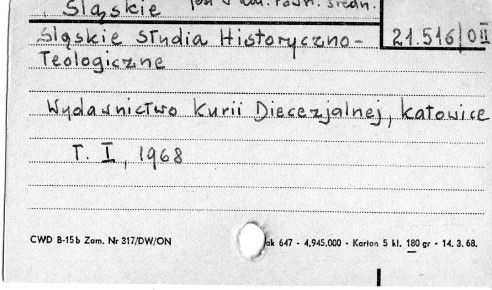 Śląskie
Śląskie Studia Historyczno-
Teologiczne
21.516/0II
Wydawnictwo Kurii Diecezjalnej, Katowice
T. I, 1968
CWD B-15b Zam. Nr 317/DW/ON
ak 647 - 4,945.000 - Karton 5 kl. 180 gr - 14. 3. 68.